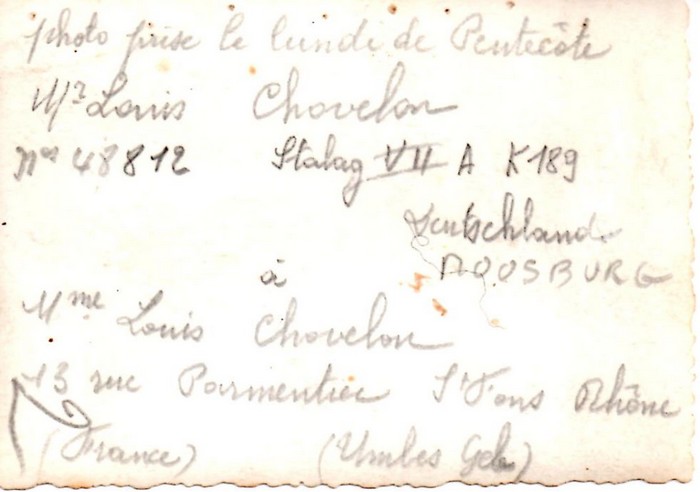 photo prise le lundi de Pentecôte
Mr Louis Chovelon
nos 48812 Stalag VII A K 189
Deutschland
MOOSBURG
à
Mme Louis Chovelon
13 rue Parmentier St Fons Rhône
(France) (Umbes Geb)